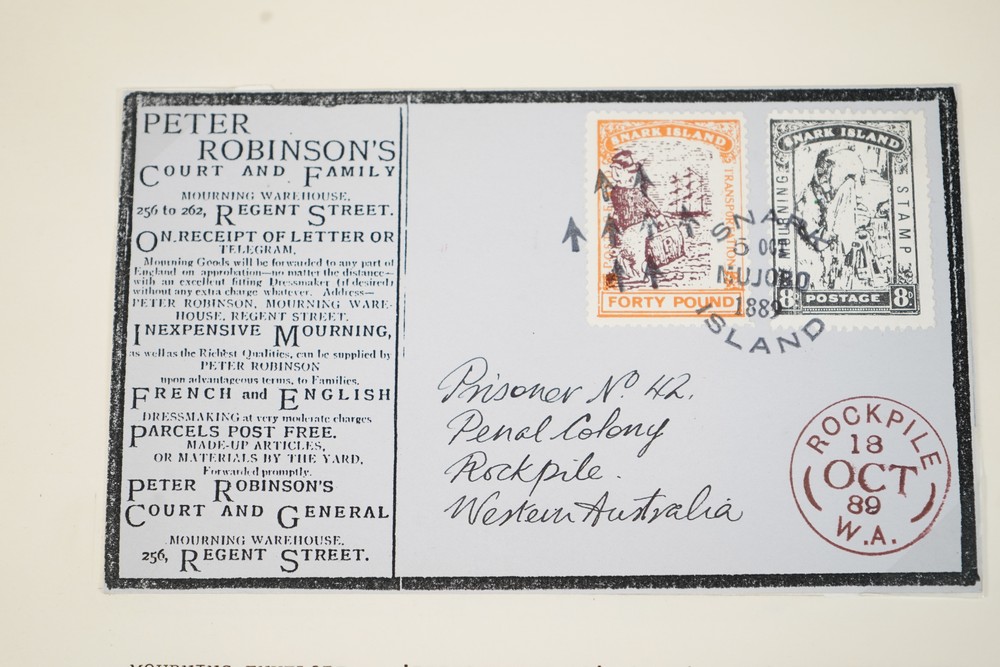 PETER
ROBINSON'S
COURT AND FAMILY
MOURNING WAREHOUSE,
256 to 262, REGENT STREET.
ON RECEIPT OF LETTER OR
TELEGRAM,
Mourning Goods will be forwarded to any part of
England on approbation—no matter the distance—
with an excellent fitting Dressmaker (if desired)
without any extra charge whatever. Address—
PETER ROBINSON, MOURNING WARE-
HOUSE, REGENT STREET.
INEXPENSIVE MOURNING,
as well as the Richest Qualities, can be supplied by
PETER ROBINSON
upon advantageous terms, to Families.
FRENCH and ENGLISH
DRESSMAKING at very moderate charges
PARCELS POST FREE.
MADE-UP ARTICLES,
OR MATERIALS BY THE YARD,
Forwarded promptly.
PETER ROBINSON'S
COURT AND GENERAL
MOURNING WAREHOUSE,
256, REGENT STREET.
SNARK ISLAND
TRANSPORTATION
FORTY POUND
SNARK ISLAND
MOURNING
STAMP
8D POSTAGE 8D
SNARK
5 OCT
MUJORO
1889
ISLAND
Prisoner No. 42.
Penal Colony
Rockpile.
Western Australia
ROCKPILE
18
OCT
89
W.A.